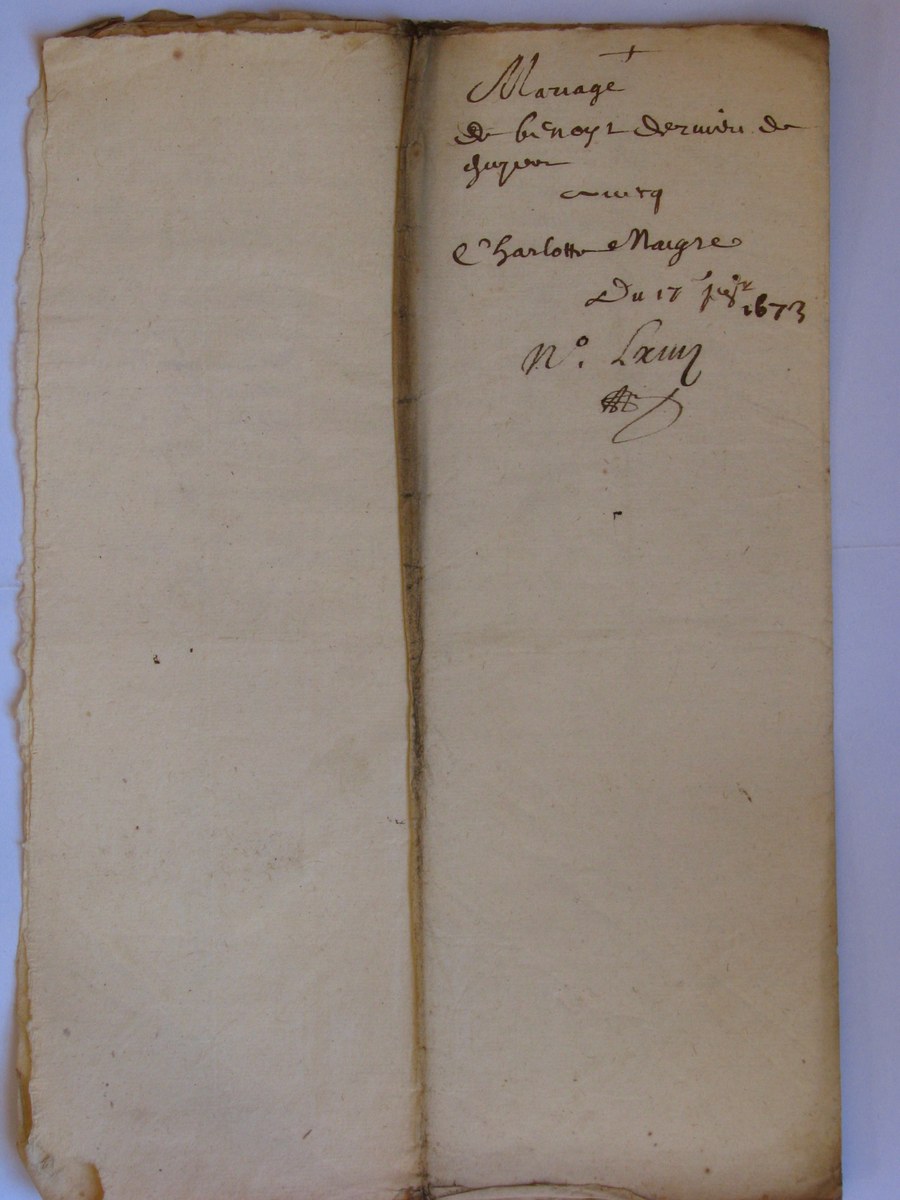 Mariage
de benoyt dervieu de
chuyer
avecq
Charlotte Maigre
Du 17 1673
N°. Lxiiij